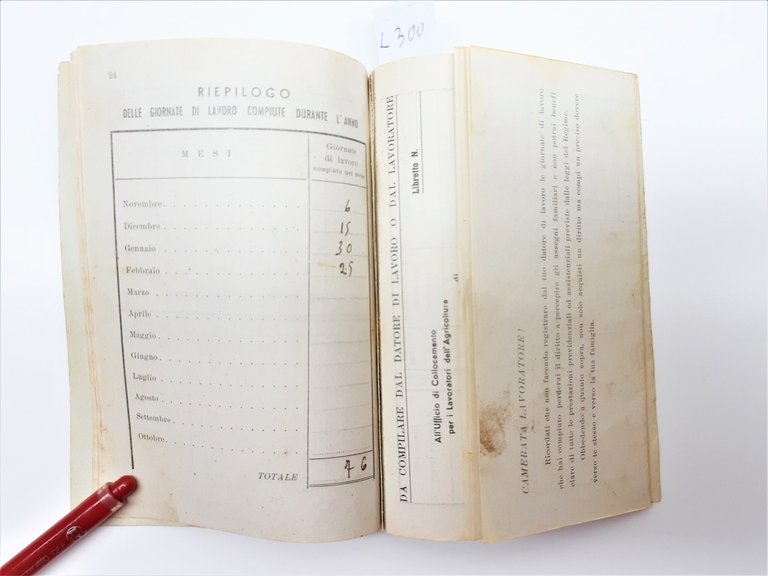 L 300
24
RIEPILOGO
DELLE GIORNATE DI LAVORO COMPIUTE DURANTE L'ANNO
MESI
Giornate
di lavoro
compiute nel mese
Novembre 6
Dicembre 15
Gennaio 30
Febbraio 25
Marzo
Aprile
Maggio
Giugno
Luglio
Agosto
Settembre
Ottobre
TOTALE 76
DA COMPILARE DAL DATORE DI LAVORO O DAL LAVORATORE
Libretto N.
All'Ufficio di Collocamento
per i Lavoratori dell'Agricoltura
di
CAMERATA LAVORATORE!
Ricordati che non facendo registrare dal tuo datore di lavoro le giornate di lavoro
che hai compiuto perderai il diritto a percepire gli assegni familiari e non potrai benefi
ciare di tutte le prestazioni previdenziali ed assistenziali previste dalle leggi del Regime.
Obbedendo a quanto sopra, non solo acquisti un diritto ma compi un preciso dovere
verso te stesso e verso la tua famiglia.